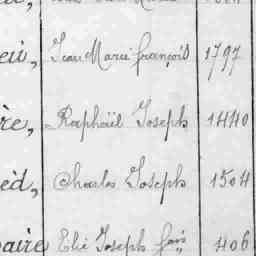 Jean Marie françois 1797
re, Raphaël Joseph 1440
Charles Joseph 1504
aire Elie Joseph fçois 406